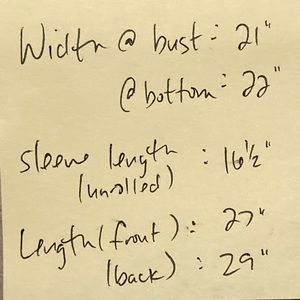 Width @ bust: 21"
@ bottom: 22"
sleeve length : 16 1/2"
(unrolled)
Length (front): 27"
(back) : 29"